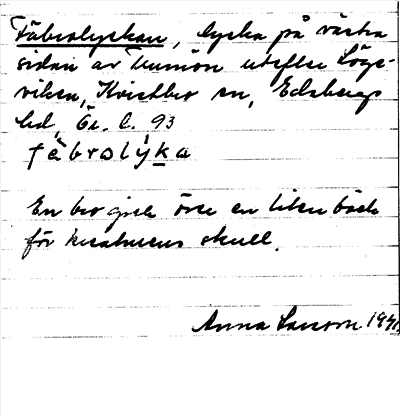 Fäbrolyckan, lycka på västra
sidan av Tunnön utefter Löge-
viken, Kvistbro sn, Edsbergs
hd, Ör. l. 93
fäbrolýka
En bro gick över en liten bäck
för kreaturens skull.
Anna Larsson 19